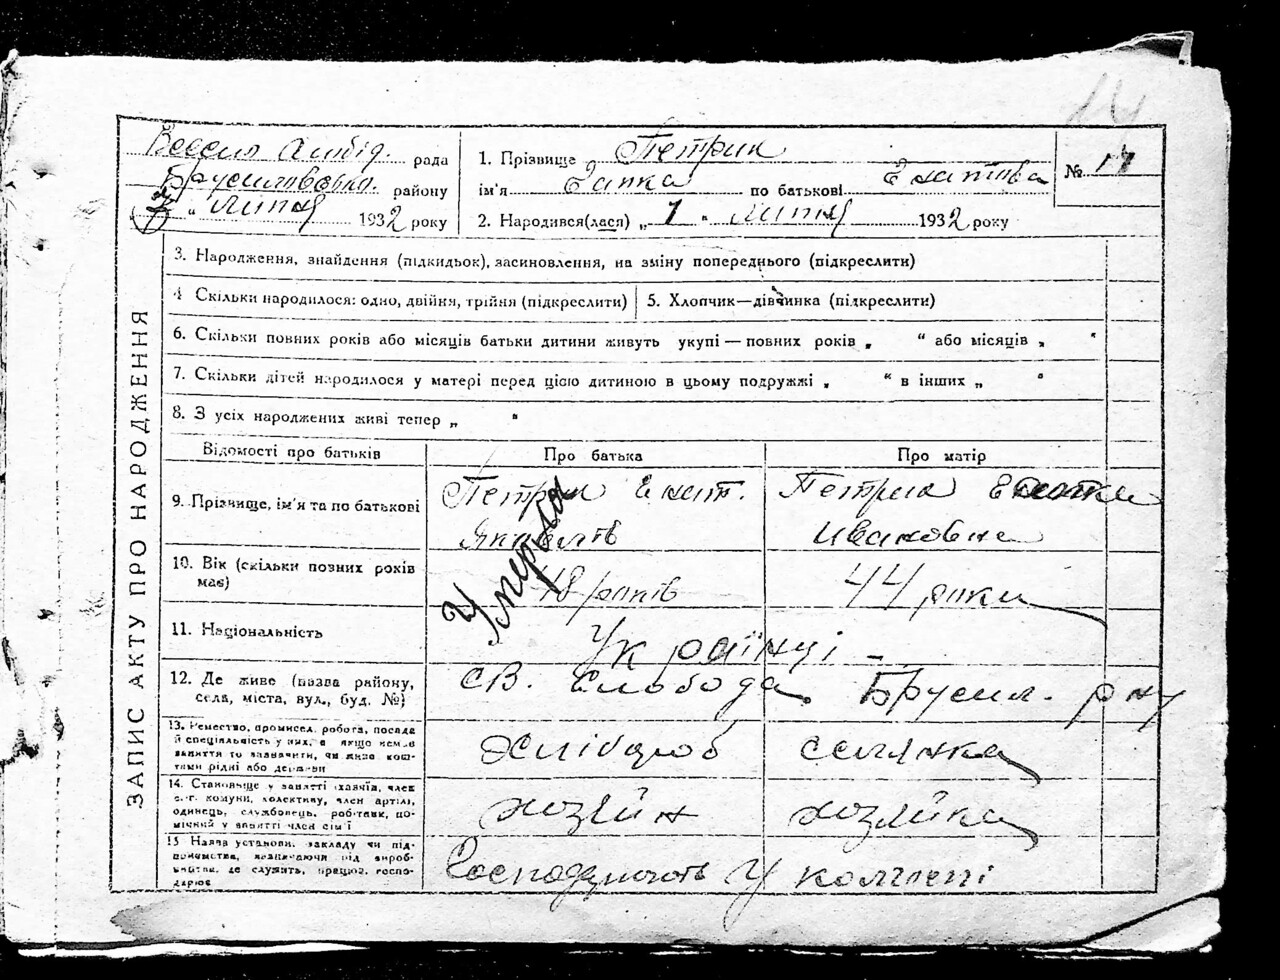 14
рада
1. Прізвище Петрик
№ 17
району
ім'я Ганка по батькові
" липня 1932 року
2. Народився(лася) „ 1 " липня 1932 року
ЗАПИС АКТУ ПРО НАРОДЖЕННЯ
3. Народження, знайдення (підкидьок), засиновлення, на зміну попереднього (підкреслити)
4 Скільки народилося: одно, двійня, трійня (підкреслити)
5. Хлопчик—дівчинка (підкреслити)
6. Скільки повних років або місяців батьки дитини живуть укупі — повних років „ " або місяців „ "
7. Скільки дітей народилося у матері перед цією дитиною в цьому подружжі „ " в інших „ "
8. З усіх народжених живі тепер „ "
Відомості про батьків
Про батька
Про матір
9. Прізвище, ім'я та по батькові
Петрик Гнат.
Петрик
Якович
Ивановна
Умерла
10. Вік (скільки повних років має)
48 років
44 роки
11. Національність
Українці -
12. Де живе (назва району, села, міста, вул., буд. №)
св. Слобода Брусил. р-ну
13. Ремество, промисел, робота, посада
й спеціяльність у них, а якщо нема
заняття то зазначити, чи живе кош-
тами рідні або держави
Хлібороб
селянка
14. Становище у занятті хазяїн, член
с.-г. комуни, колективу, член артілі,
одинець, службовець, робітник, по-
мічний у занятті член сім'ї
хозяйн
хозяйка
15 Назва установи, закладу чи під-
приємства, визначаючи рід вироб-
ництва, де служить, працює, госпо-
дарює
Господарюють у колгоспі